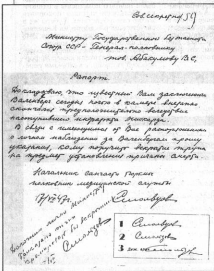 Сов. секретно 59
Министру Государственной безопасности
Союза ССР – Генерал-полковнику
тов. Абакумову В.С.
Рапорт
Докладываю, что известный Вам заключенный
Валенберг сегодня ночью в камере внезапно
скончался предположительно вследствие
наступившего инфаркта миокарда.
В связи с имеющимся от Вас распоряжением
о личном наблюдении за Валенбергом прошу
указания, кому поручить вскрытие трупа
на предмет установления причины смерти.
Начальник санчасти тюрьмы
полковник медицинской службы
17/VII 47г. Смольцов
Доложил лично Министру
Приказано труп
кремировать без вскрытия
Смольцов
1 Смольцов
2 Смольцов
3